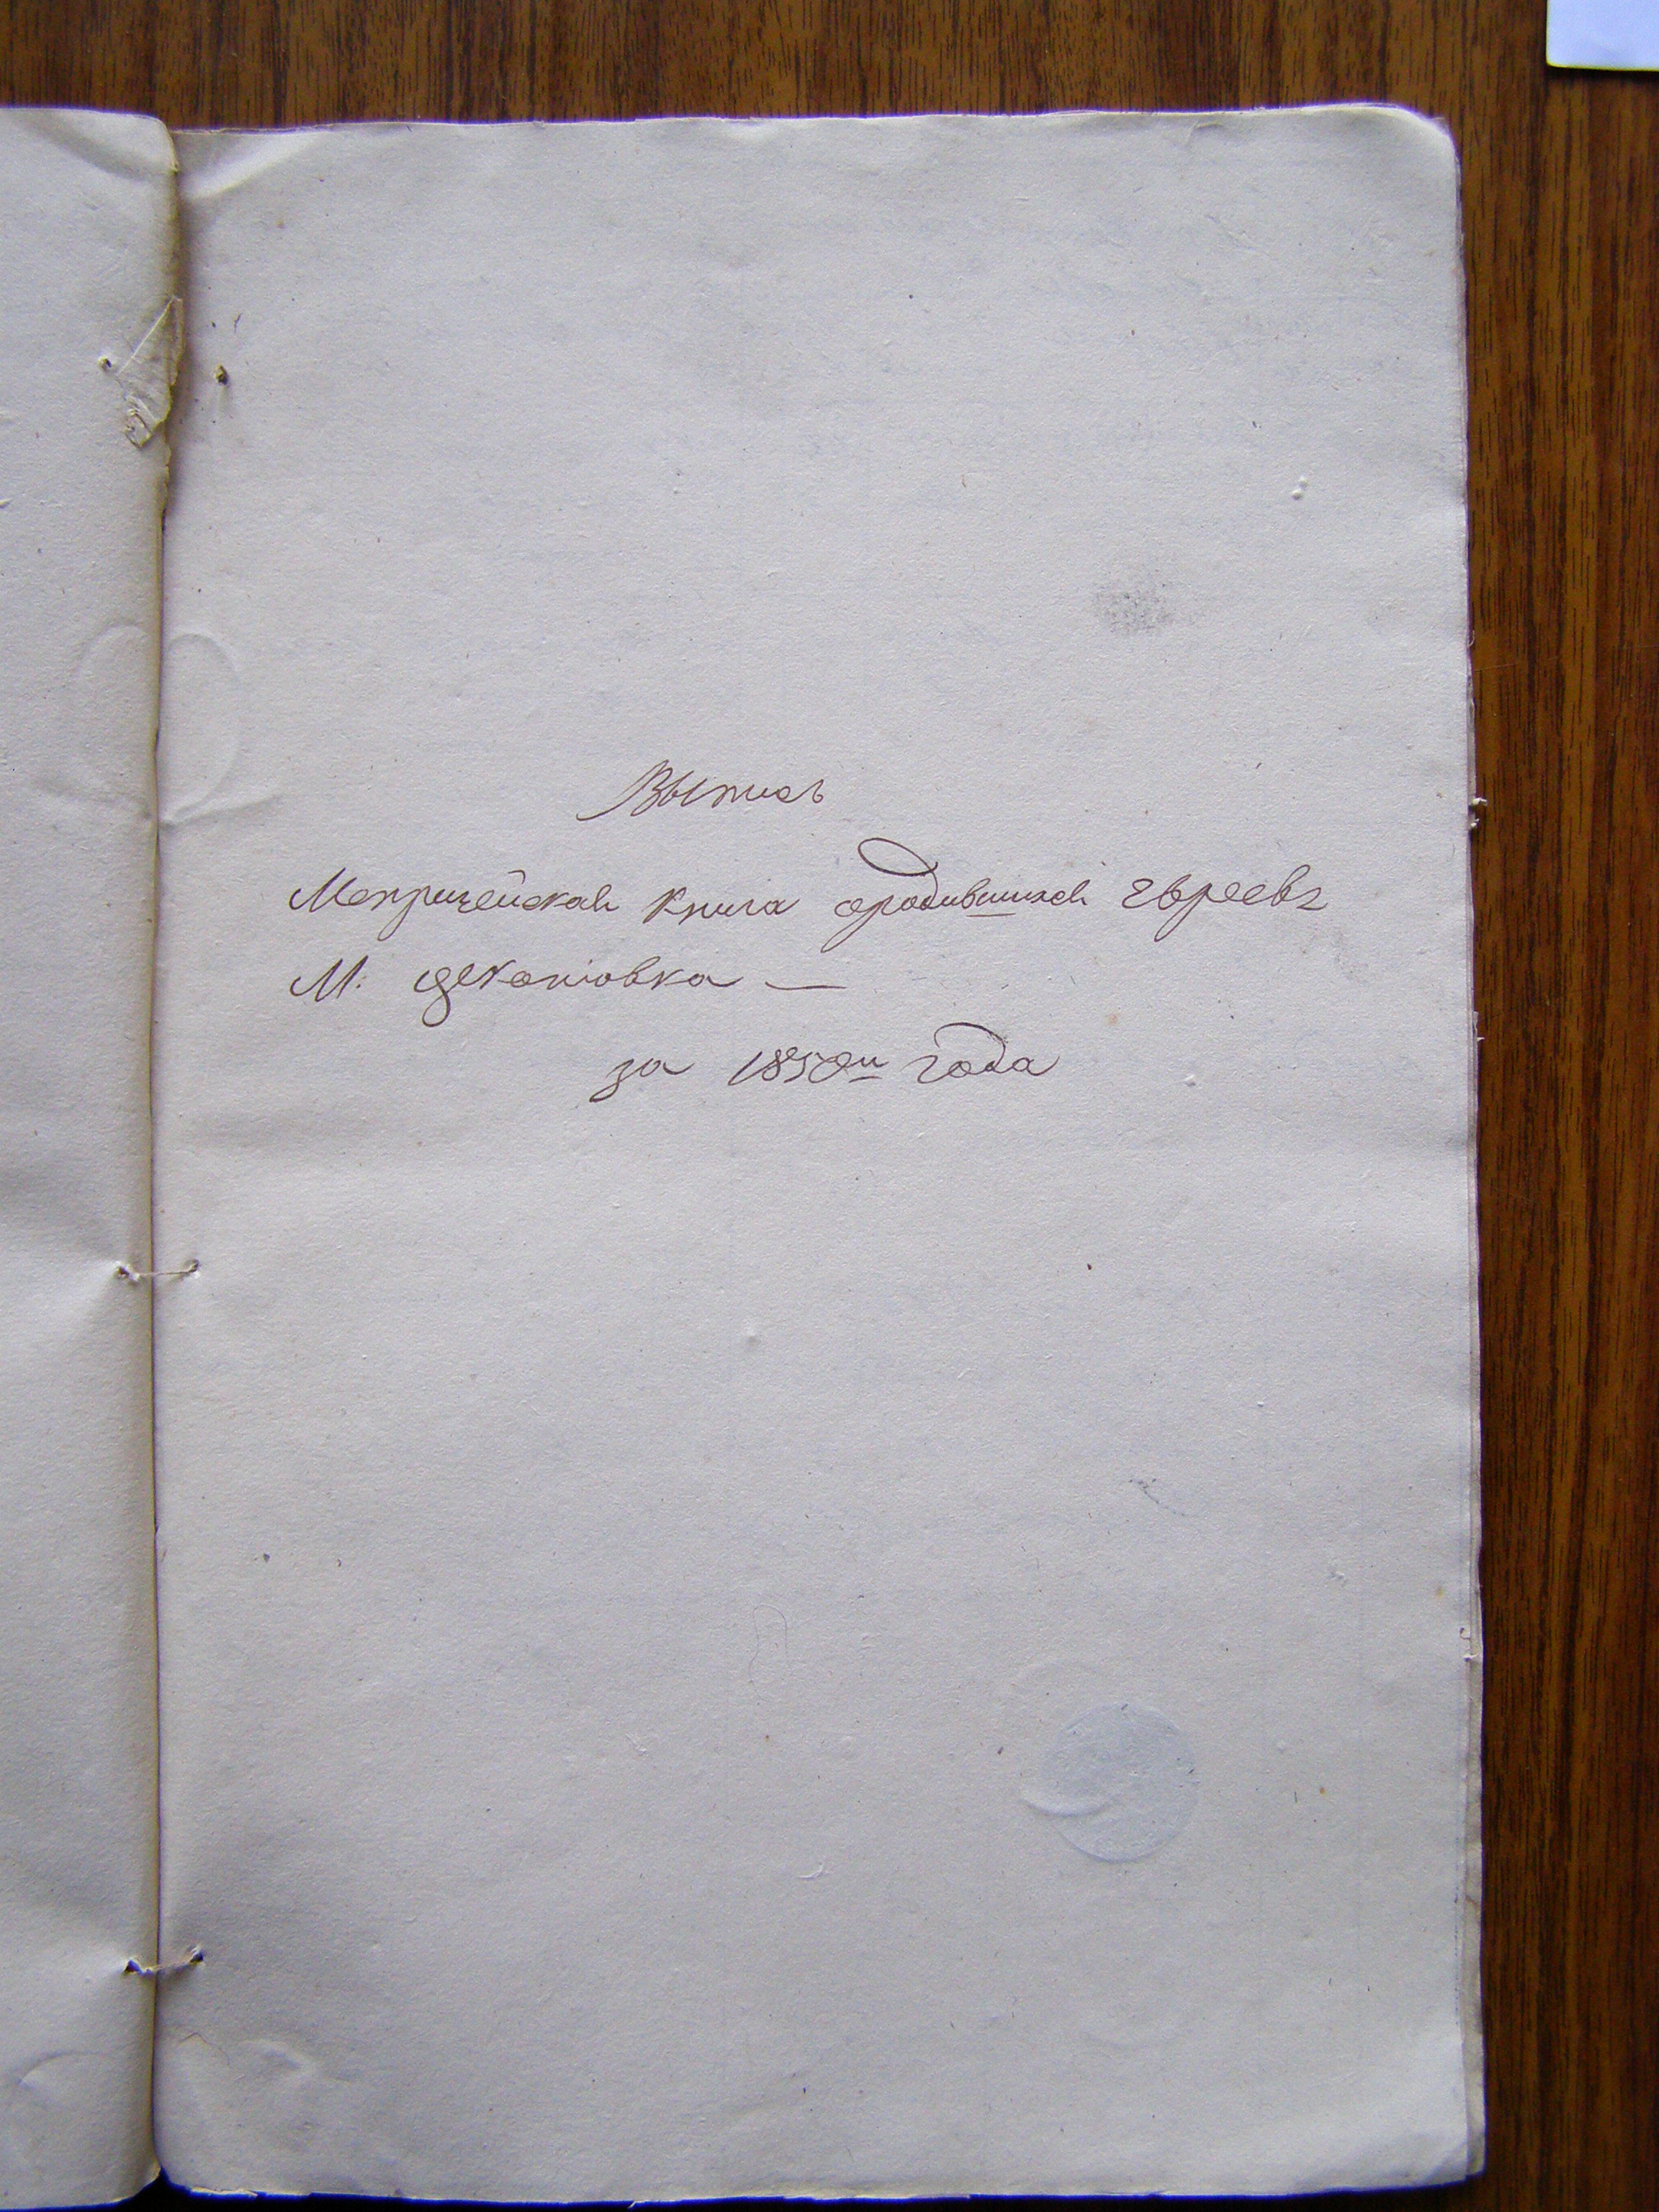 Выпись
Метрическая книга ородившихся Евреевъ
М: Фекотовка —
за 1850й года